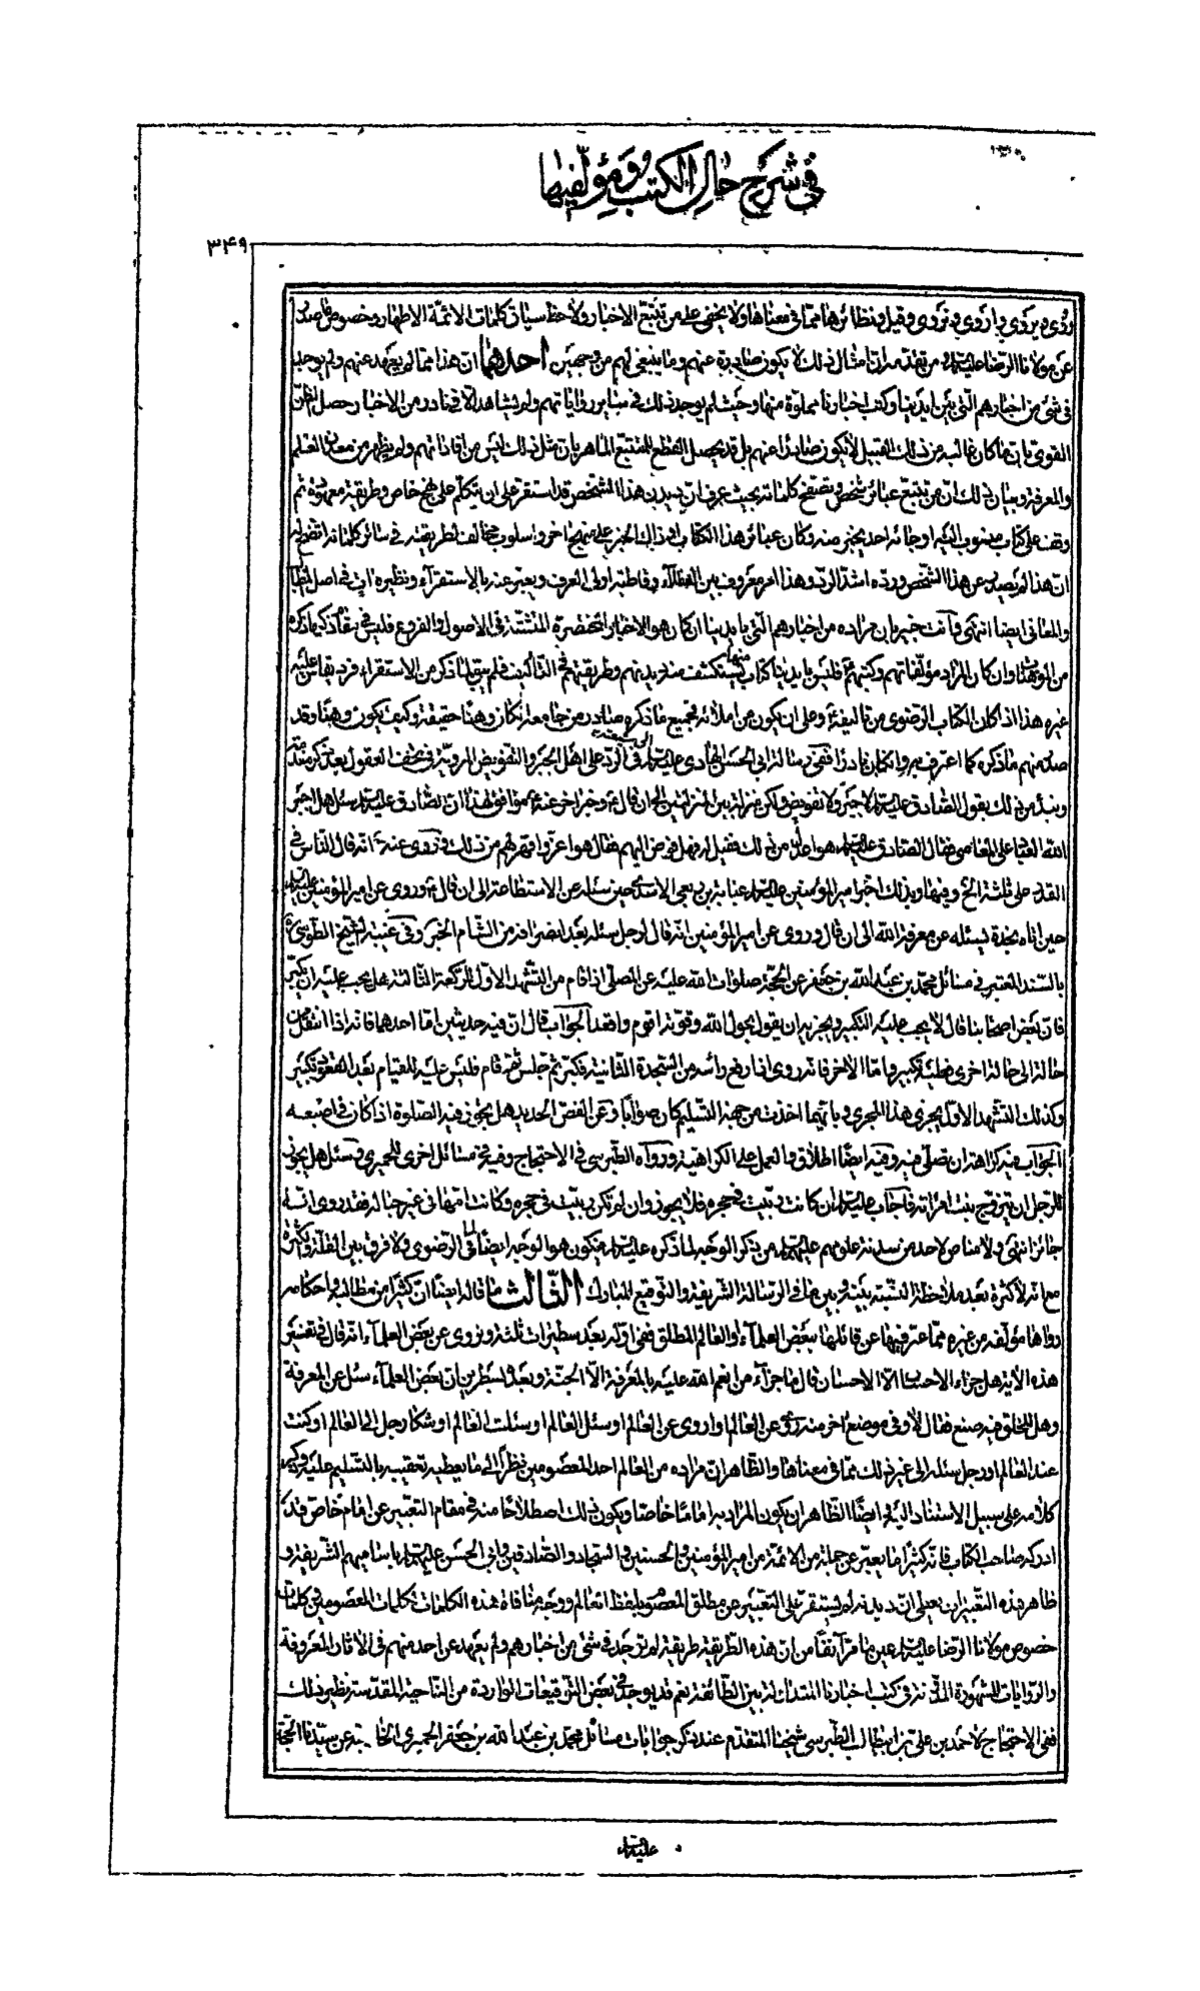 في شرح حال الكتب ومؤلفيها
٣٤٩
روى ويروى واروى ونروى وقيل ونظائرها مما في معناها ولا يخفى على من تتبع الاخبار ولاحظ سياق كلمات الائمة الاطهار وخصوص ما صدر
عن مولانا الرضا عليه السلام من تقدمه ان امثال ذلك لا يكون صادرة عنهم وما ينبغي لهم من وجهين احدهما ان هذا مما لم يعهد عنهم ولم يوجد
في شئ من اخبارهم التي بين ايدينا وكتب اخبارنا مملوة منها وحيث لم يوجد ذلك في ساير رواياتهم ولم يشاهد الا في نادر من الاخبار حصل الظن
القوى بان ما كان غالبه من ذلك القبيل لا يكون صادرا عنهم بل قد يحصل القطع للمتتبع الماهر بان مثل ذلك ليس من افاداتهم ولم يظهر من معادن العلم
والمعرفة وبيان ذلك ان من تتبع عبائر شخص وتصفح كلماته بحيث عرف ان ديدن هذا الشخص قد استقر على ان يتكلم على نهج خاص وطريقة معهودة ثم
وقف على كتاب منسوب اليه او جائه احد بخبر منه وكان عبائر هذا الكتاب او ذلك الخبر على منهج اخر واسلوب مخالف لطريقته في سائر كلماته اتضح له
ان هذا لم يصدر عن هذا الشخص ورده اشد الرد وهذا امر معروف بين العقلاء وقاطبة اولى العرف ويعبر عنه بالاستقراء ونظيره ات في اصل المطالب
والمعاني ايضا انتهى وانت خبير بان مراده من اخبارهم التي بايدينا ان كان هو الاخبار المختصرة المتشتتة في الاصول والفروع فليس في بقاء ذكر ما ذكره
من الموهنات وان كان المراد مؤلفاتهم وكتبهم فليس بايدينا كتاب منها يستكشف منه ديدنهم وطريقتهم في التأليف فلم يبق لما ذكر من الاستقراء فرد يقاس عليه
غيره هذا اذا كان الكتاب الرضوى من تاليفه وعلى ان يكون من املائه فجميع ما ذكره صادر من جامعه لكان وهنا حقيقة وكيف يكون وهنا وقد
صدر منهم ما ذكره كما اعترف به وانكان نادرا ففي رسالة ابي الحسن الهادي عليه السلام في الرد على اهل الجبر والتفويض المروية في تحف العقول بعد ذكر مقدمة
ونبدء من ذلك بقول الصادق عليه السلام لا جبر ولا تفويض ولكن منزلة بين المنزلتين الى ان قال وخبر اخر عنه موافق لهذا ان الصادق عليه السلام سئل هل اجبر
الله العباد على المعاصى فقال الصادق عليه السلام هو اعدل من ذلك فقيل له فهل فوض اليهم فقال هو اعز واقهر لهم من ذلك وروى عنه انه قال الناس في
القدر على ثلثة الخ وفيها وبذلك اخبر امير المؤمنين عليه السلام عباية بن ربعى الاسدى حين سئله عن الاستطاعة الى ان قال وروى عن امير المؤمنين عليه السلام
حين اتاه نجدة يسئله عن معرفة الله الى ان قال وروى عن امير المؤمنين انه قال لرجل سئله بعد انصرافه من الشام الخبر وفي غيبة الشيخ الطوسى
بالسند المعتبر في مسائل محمد بن عبد الله بن جعفر عن الحجة صلوات الله عليه عن المصلى اذا قام من التشهد الاول للركعة الثالثة هل يجب عليه ان يكبر
فان بعض اصحابنا قال لا يجب عليه التكبير ويجزيه ان يقول بحول الله وقوته اقوم واقعد الجواب قال ان فيه حديثين اما احدهما فانه اذا انتقل من
حالة الى حالة اخرى فعليه تكبير واما الاخر فانه روى اذا رفع رأسه من السجدة الثانية فكبر ثم جلس ثم قام فليس عليه للقيام بعد القعود تكبير
وكذلك التشهد الاول يجرى هذا المجرى وبايهما اخذت من جهة التسليم كان صوابا وعن الفص الحديد هل يجوز فيه الصلوة اذا كان في اصبعه
الجواب فيه كراهة ان تصلى فيه وفيه ايضا اطلاق والعمل على الكراهية ورواه الطبرسى في الاحتجاج وفيه في مسائل اخرى للحميرى وسئل هل يجوز
للرجل ان يتزوج بنت امرأته فاجاب عليه السلام ان كانت ربيت في حجره فلا يجوز وان لم تكن ربيت في حجره وكانت امها في غير حباله فقد روى انه
جائز انتهى ولا مناص لاحد من سدنة علومهم عليهم السلام من ذكر الوجه لما ذكره عليه السلام فيكون هو الوجه ايضا لما في الرضوى ولا فرق بين القلة والكثرة
مع انه لا كثرة بعد ملاحظة النسبة بينه وبين ما في الرسالة الشريفة والتوقيع المبارك الثالث ما قاله ايضا ان كثيرا من مطالبه واحكامه
رواها مؤلفه من غيره مما عبر فيها عن قائلها ببعض العلماء والعالم المطلق ففى اوله بعد سطيرات ثلثة ونروى عن بعض العلماء انه قال في تفسير
هذه الاية هل جزاء الاحسان الا الاحسان قال ما جزاء من انعم الله عليه بالمعرفة الا الجنة وبعده بسطرين ان بعض العلماء سئل عن المعرفة
وهل للخلق فيه صنع فقال لا وفى موضع اخر منه روى عن العالم واروى عن العالم او سئل العالم او سئلت العالم او شكا رجل الى العالم او كنت
عند العالم ورجل سئله الى غير ذلك مما في معناها والظاهر ان مراده من العالم احد المعصومين نظرا الى ما يعطيه تعقيبه بالتسليم عليه وذكر
كلامه على سبيل الاستناد اليه وايضا الظاهر ان يكون المراد به اماما خاصا ويكون ذلك اصطلاحا منه في مقام التعبير عن امام خاص قد
ادركه صاحب الكتاب فانه كثيرا ما يعبر عن جملة من الائمة من امير المؤمنين والحسنين والسجاد والصادقين وابي الحسن عليهم السلام باساميهم الشريفة و
ظاهر هذه التعبير ان يعطى ان ديدنه لم يستقر على التعبير عن مطلق المعصوم بلفظ العالم ووجه منافاة هذه الكلمات لكلمات المعصومين وكلمات
خصوص مولانا الرضا عليه السلام عين ما مر آنفا من ان هذه الطريقة طريقة لم توجد في شئ من اخبارهم ولم يعهد عن احد منهم في الاثار المعروفة
والروايات المشهورة المدونة في كتب اخبارنا المتداولة بين الطائفة نعم قد يوجد في بعض التوقيعات الواردة من الناحية المقدسة نظير ذلك
ففى الاحتجاج لاحمد بن على بن ابيطالب الطبرسى شيخنا المتقدم عند ذكر جوابات مسائل محمد بن عبد الله بن جعفر الحميرى الخارجة عن سيدنا الحجة
عليه السلام